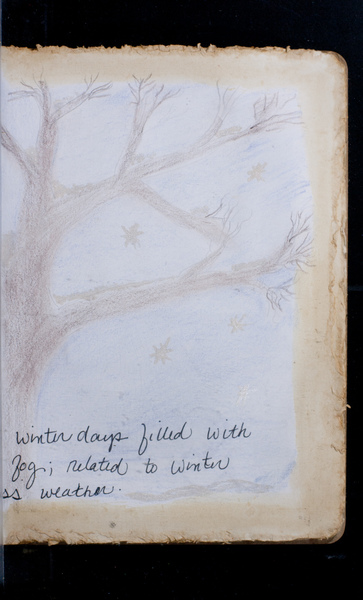 winter days filled with
fog; related to winter
ss weather.